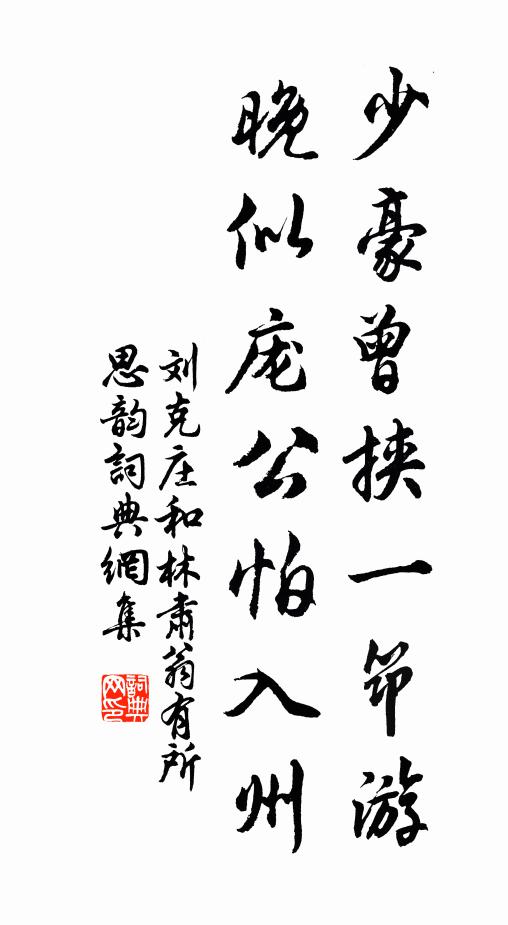 少豪曾挟一筇游
晚似庞公怕入州
刘克庄和林肃翁有所
思韵詞典網集
詞典网印